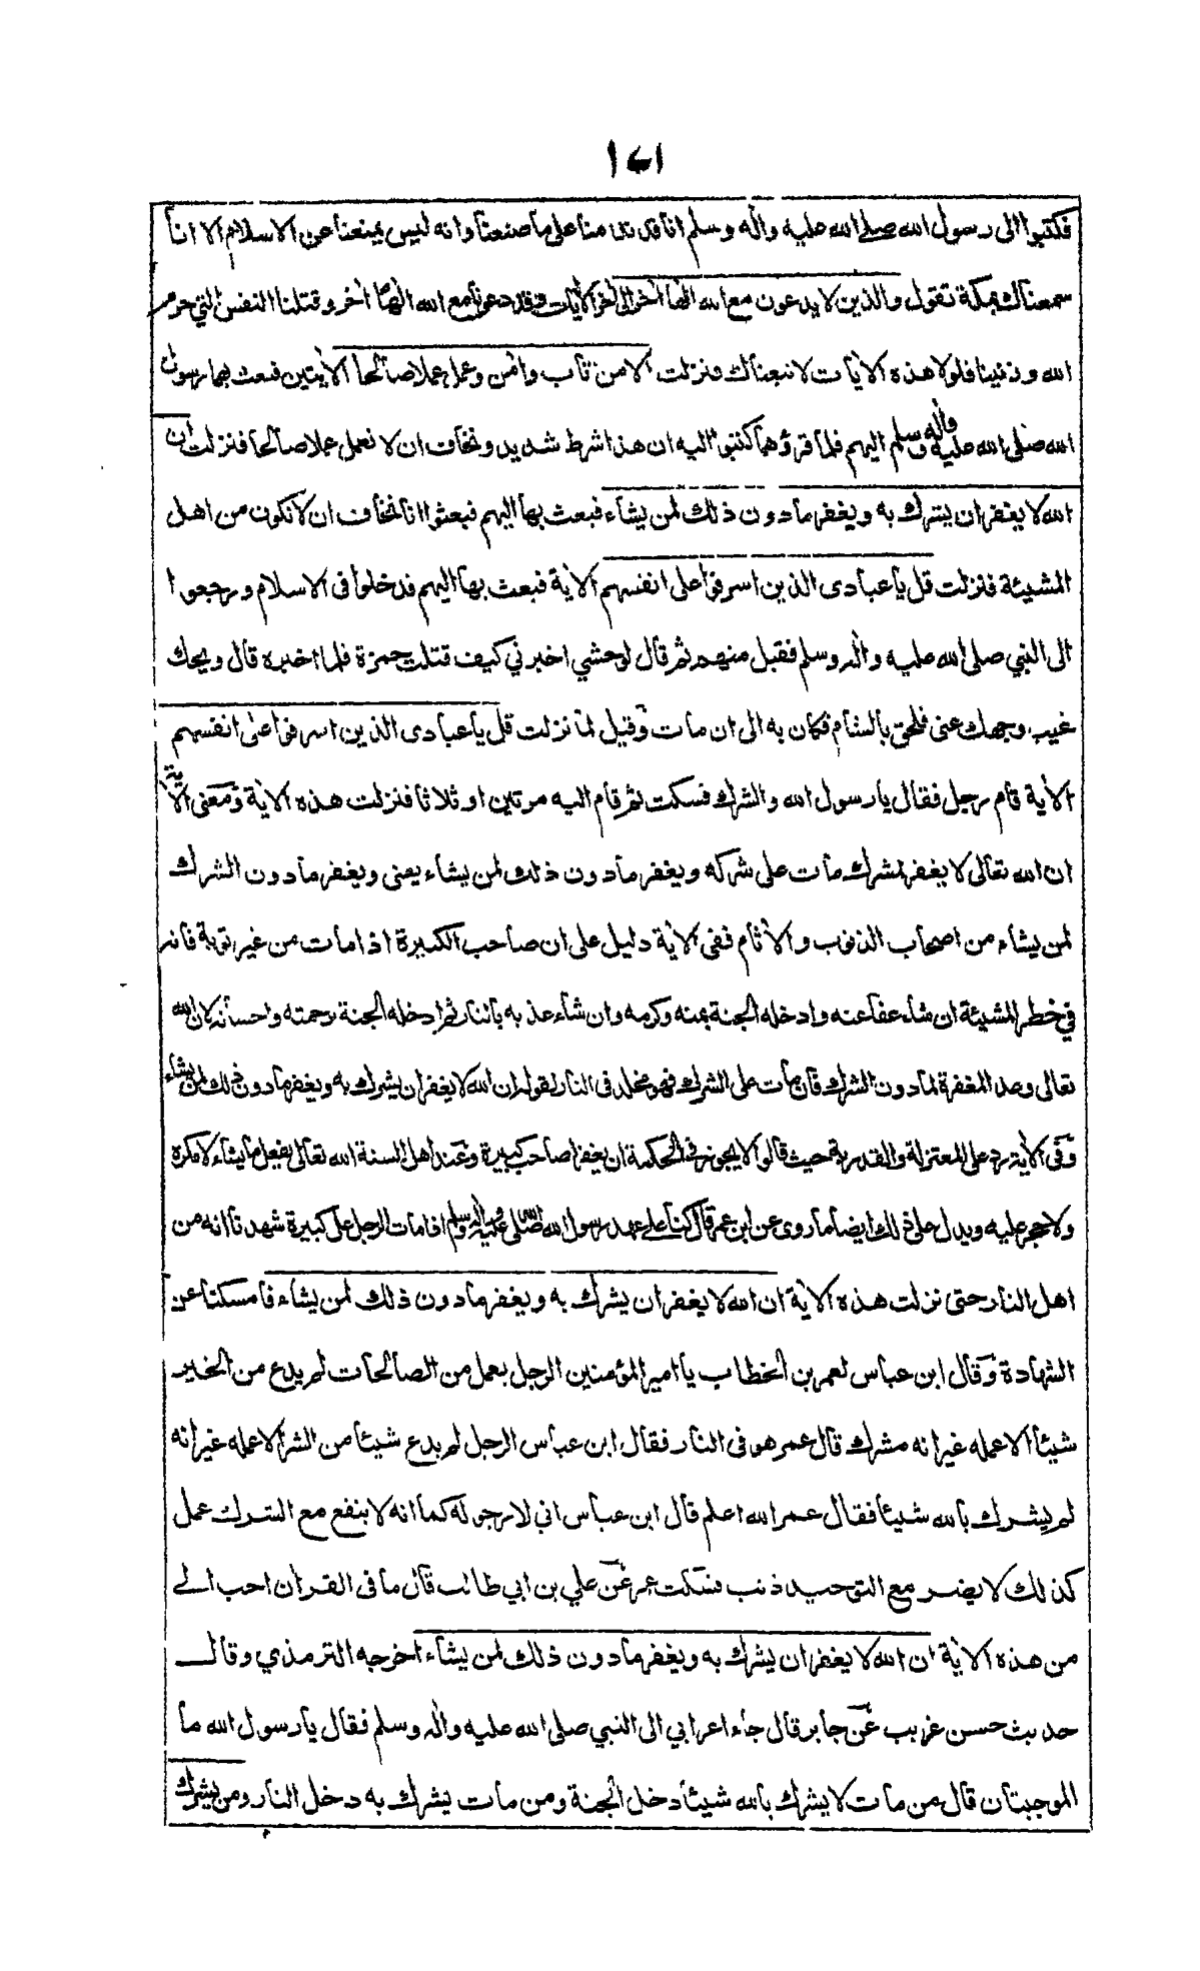 ١٤١
فكتبوا الى رسول الله صلى الله عليه واٰله وسلم انا قد ندمنا على ما صنعنا وانه ليس يمنعنا عن الاسلام الا انا
سمعناك بمكة تقول والذين لا يدعون مع الله الها اخر الى اخر الاٰيات وقد دعونا مع الله الها اخر وقتلنا النفس التي حرم
الله وزنينا فلولا هذه الاٰيات لاتبعناك فنزلت الا من تاب واٰمن وعمل عملا صالحا الاٰيتين فبعث بهما رسول
الله صلى الله عليه واٰله وسلم اليهم فلما قرؤهما كتبوا اليه ان هذا شرط شديد ونخاف ان لا نعمل عملا صالحا فنزلت ان
الله لا يغفر ان يشرك به ويغفر ما دون ذلك لمن يشاء فبعث بها اليهم فبعثوا انا نخاف ان لا نكون من اهل
المشيئة فنزلت قل يا عبادى الذين اسرفوا على انفسهم الاٰية فبعث بها اليهم فدخلوا فى الاسلام ورجعوا
الى النبي صلى الله عليه واٰله وسلم فقبل منهم ثم قال لوحشي اخبرني كيف قتلت حمزة فلما اخبره قال ويحك
غيب وجهك عنى فلحق بالشام فكان به الى ان مات وقيل لما نزلت قل يا عبادى الذين اسرفوا على انفسهم
الاٰية قام رجل فقال يا رسول الله والشرك فسكت ثم قام اليه مرتين او ثلاثا فنزلت هذه الاٰية ومعنى الاٰية
ان الله تعالى لا يغفر لمشرك مات على شركه ويغفر ما دون ذلك لمن يشاء يعنى ويغفر ما دون الشرك
لمن يشاء من اصحاب الذنوب والاٰثام ففى الاٰية دليل على ان صاحب الكبيرة اذا مات من غير توبة فانه
في خطر المشيئة ان شاء عفا عنه وادخله الجنة بمنه وكرمه وان شاء عذبه بالنار ثم ادخله الجنة برحمته واحسانه لان الله
تعالى وعد المغفرة لما دون الشرك فان مات على الشرك فهو مخلد فى النار لقوله ان الله لا يغفر ان يشرك به ويغفر ما دون ذلك لمن يشاء
وفى الاٰية رد على المعتزلة والقدرية حيث قالوا لا يجوز فى الحكمة ان يغفر لصاحب كبيرة وعند اهل السنة الله تعالى يفعل ما يشاء لا مكره
ولا حجر عليه ويدل على ذلك ايضا ما روى عن ابن عمر قال كنا على عهد رسول الله صلى الله عليه واٰله وسلم اذا مات الرجل على كبيرة شهدنا انه من
اهل النار حتى نزلت هذه الاٰية ان الله لا يغفر ان يشرك به ويغفر ما دون ذلك لمن يشاء فامسكنا عن
الشهادة وقال ابن عباس لعمر بن الخطاب يا امير المؤمنين الرجل يعمل من الصالحات لم يدع من الخير
شيئا الا عمله غير انه مشرك قال عمر هو فى النار فقال ابن عباس الرجل لم يدع شيئا من الشر الا عمله غير انه
لم يشرك بالله شيئا فقال عمر الله اعلم قال ابن عباس اني لارجو له كما انه لا ينفع مع الشرك عمل
كذلك لا يضر مع التوحيد ذنب فسكت عمر عن علي بن ابي طالب قال ما فى القراٰن احب الي
من هذه الاٰية ان الله لا يغفر ان يشرك به ويغفر ما دون ذلك لمن يشاء اخرجه الترمذي وقال
حديث حسن غريب عن جابر قال جاء اعرابي الى النبي صلى الله عليه واٰله وسلم فقال يا رسول الله ما
الموجبتان قال من مات لا يشرك بالله شيئا دخل الجنة ومن مات يشرك به دخل النار ومن يشرك